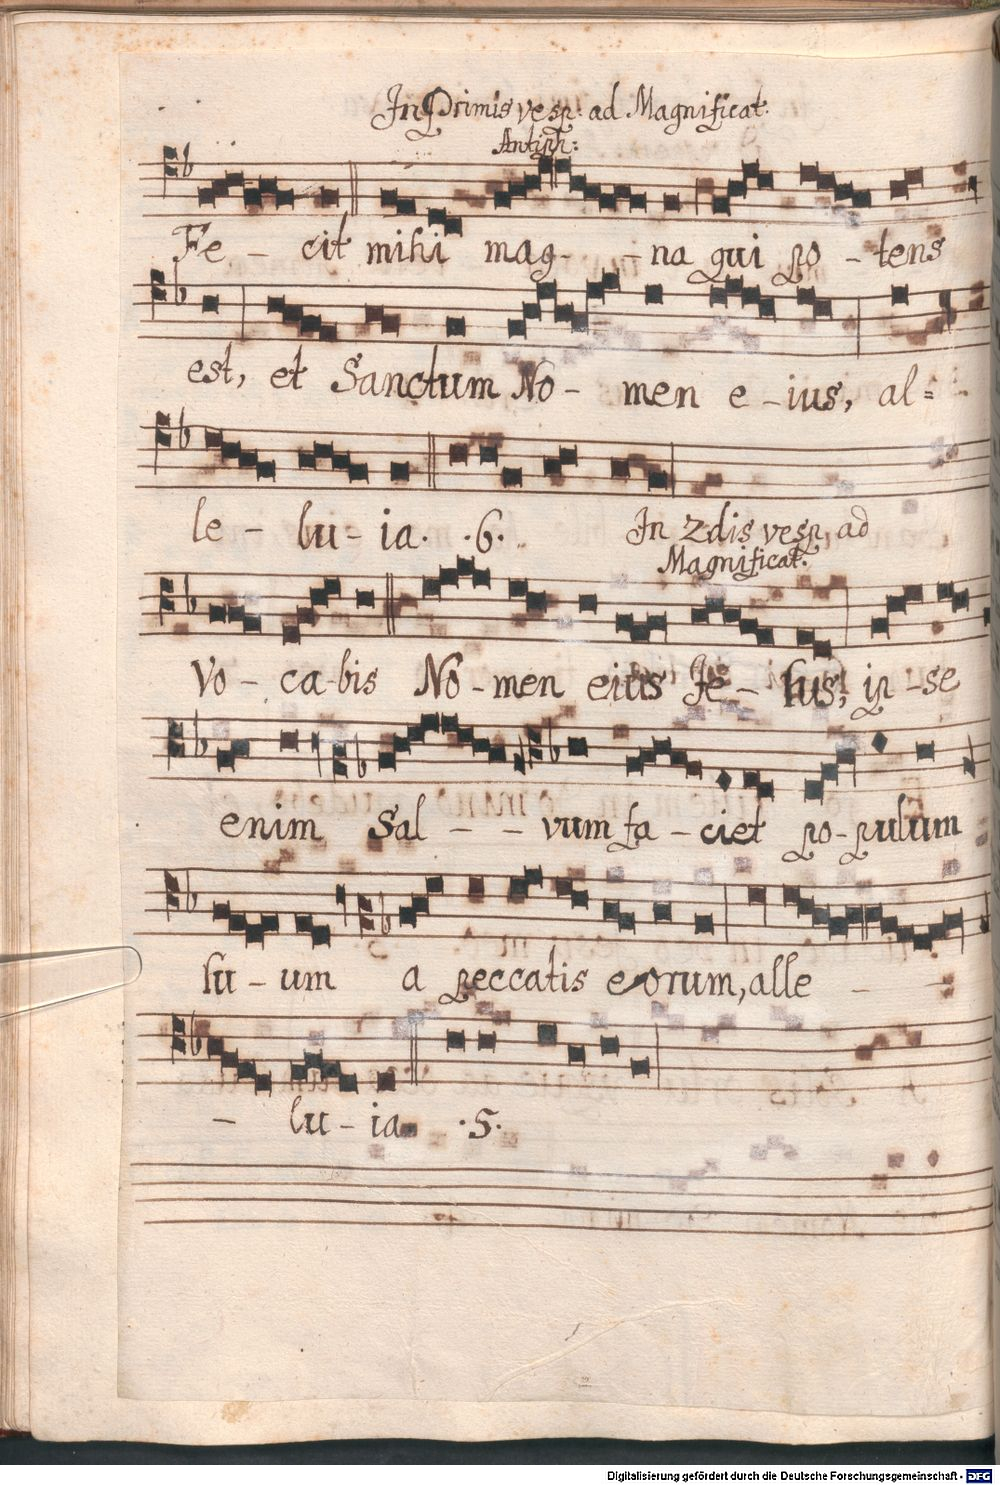 In Primis vesp: ad Magnificat.
Antiph:
Fe - cit mihi mag - - na qui po - tens
est, et Sanctum No - men e - ius, al=
le - lu - ia. .6.
In 2dis vesp. ad
Magnificat.
Vo - ca - bis No - men eius Je - sus, ip - se
enim Sal - - vum fa - ciet po - pulum
su - um a peccatis eorum, alle - -
- lu - ia .5.
Digitalisierung gefördert durch die Deutsche Forschungsgemeinschaft - DFG